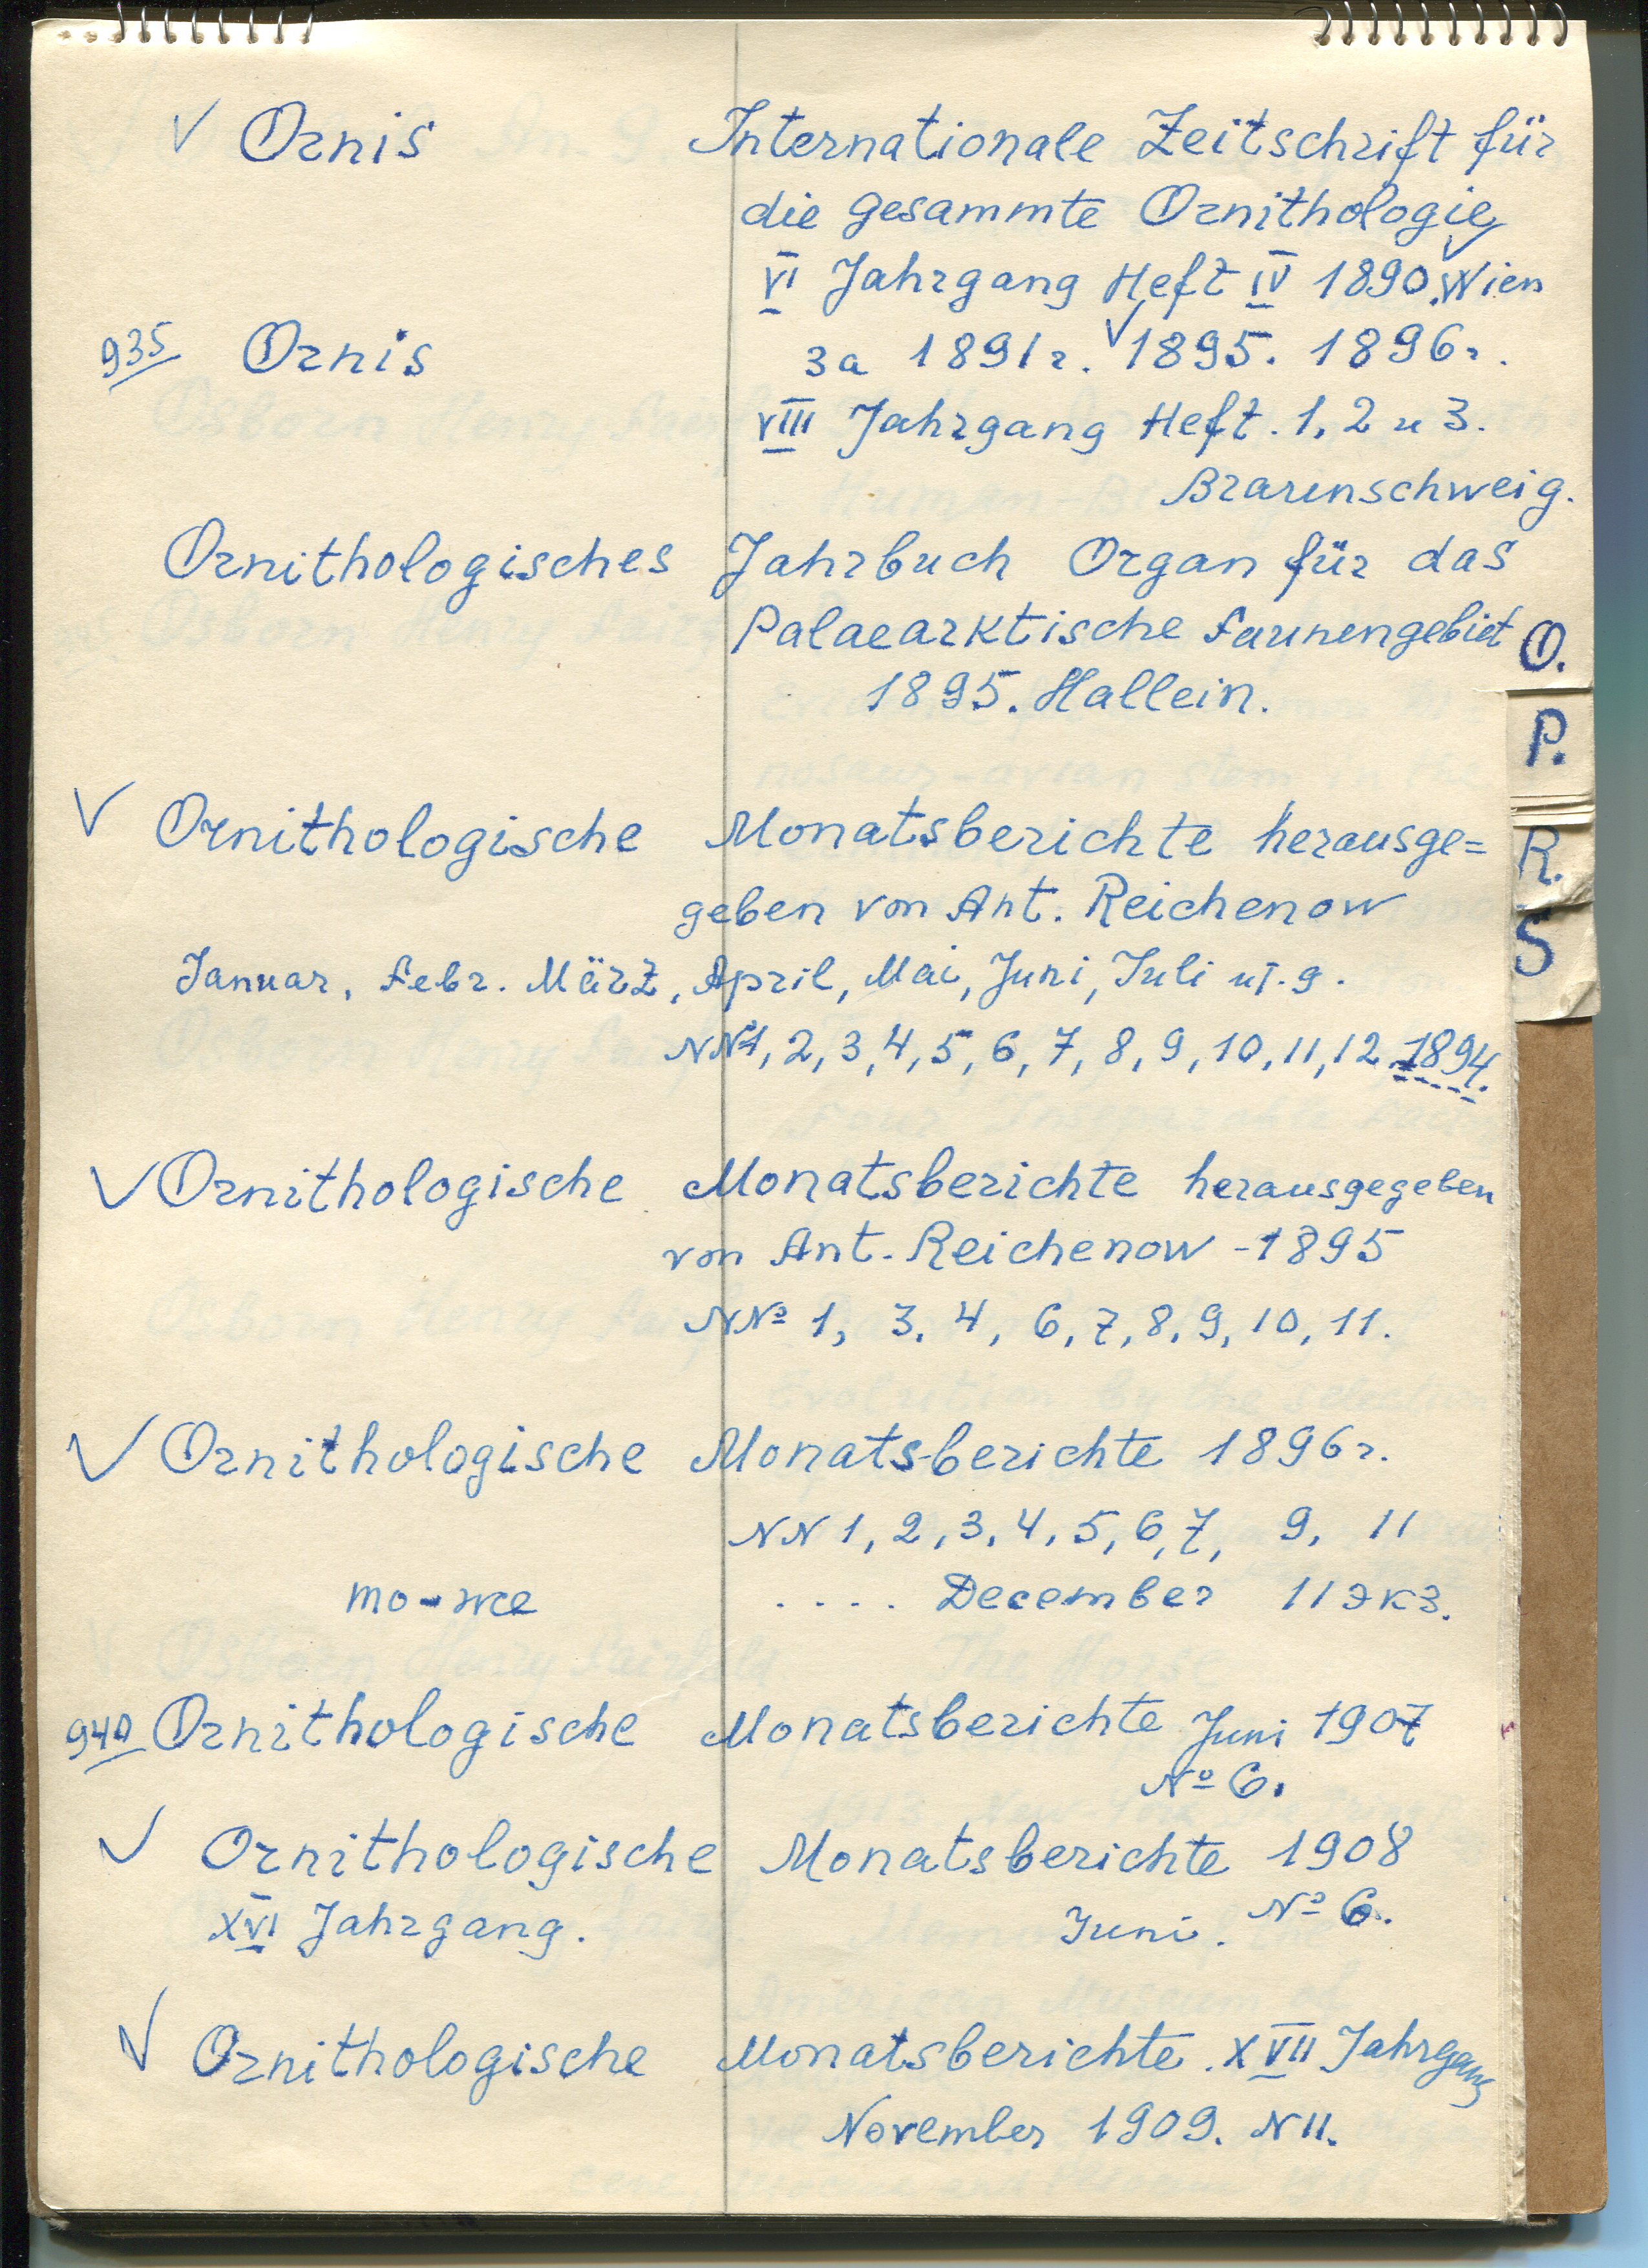 ✓ Ornis Internationale Zeitschrift für
die gesammte Ornithologie
VI Jahrgang Heft IV 1890. Wien
935 Ornis за 1891г. ✓1895. 1896г.
VIII Jahrgang Heft. 1, 2 и 3.
Braunschweig.
Ornithologisches Jahrbuch Organ für das
Palaearktische Faunengebiet
O.
1895. Hallein.
P.
✓ Ornithologische Monatsberichte herausge=
R.
geben von Ant. Reichenow
S
Januar, Febr. März, April, Mai, Juni, Juli ит.д.
NNº1, 2, 3, 4, 5, 6, 7, 8, 9, 10, 11, 12 1894.
✓ Ornithologische Monatsberichte herausgegeben
von Ant. Reichenow - 1895
NNº 1, 3, 4, 6, 7, 8, 9, 10, 11.
✓ Ornithologische Monatsberichte 1896г.
NN 1, 2, 3, 4, 5, 6, 7, 9, 11
то-же .... December 11 экз.
940 Ornithologische Monatsberichte Juni 1907
Nº 6.
✓ Ornithologische Monatsberichte 1908
XVI Jahrgang. Juni. Nº 6.
✓ Ornithologische Monatsberichte. XVII Jahrgang
November 1909. N 11.